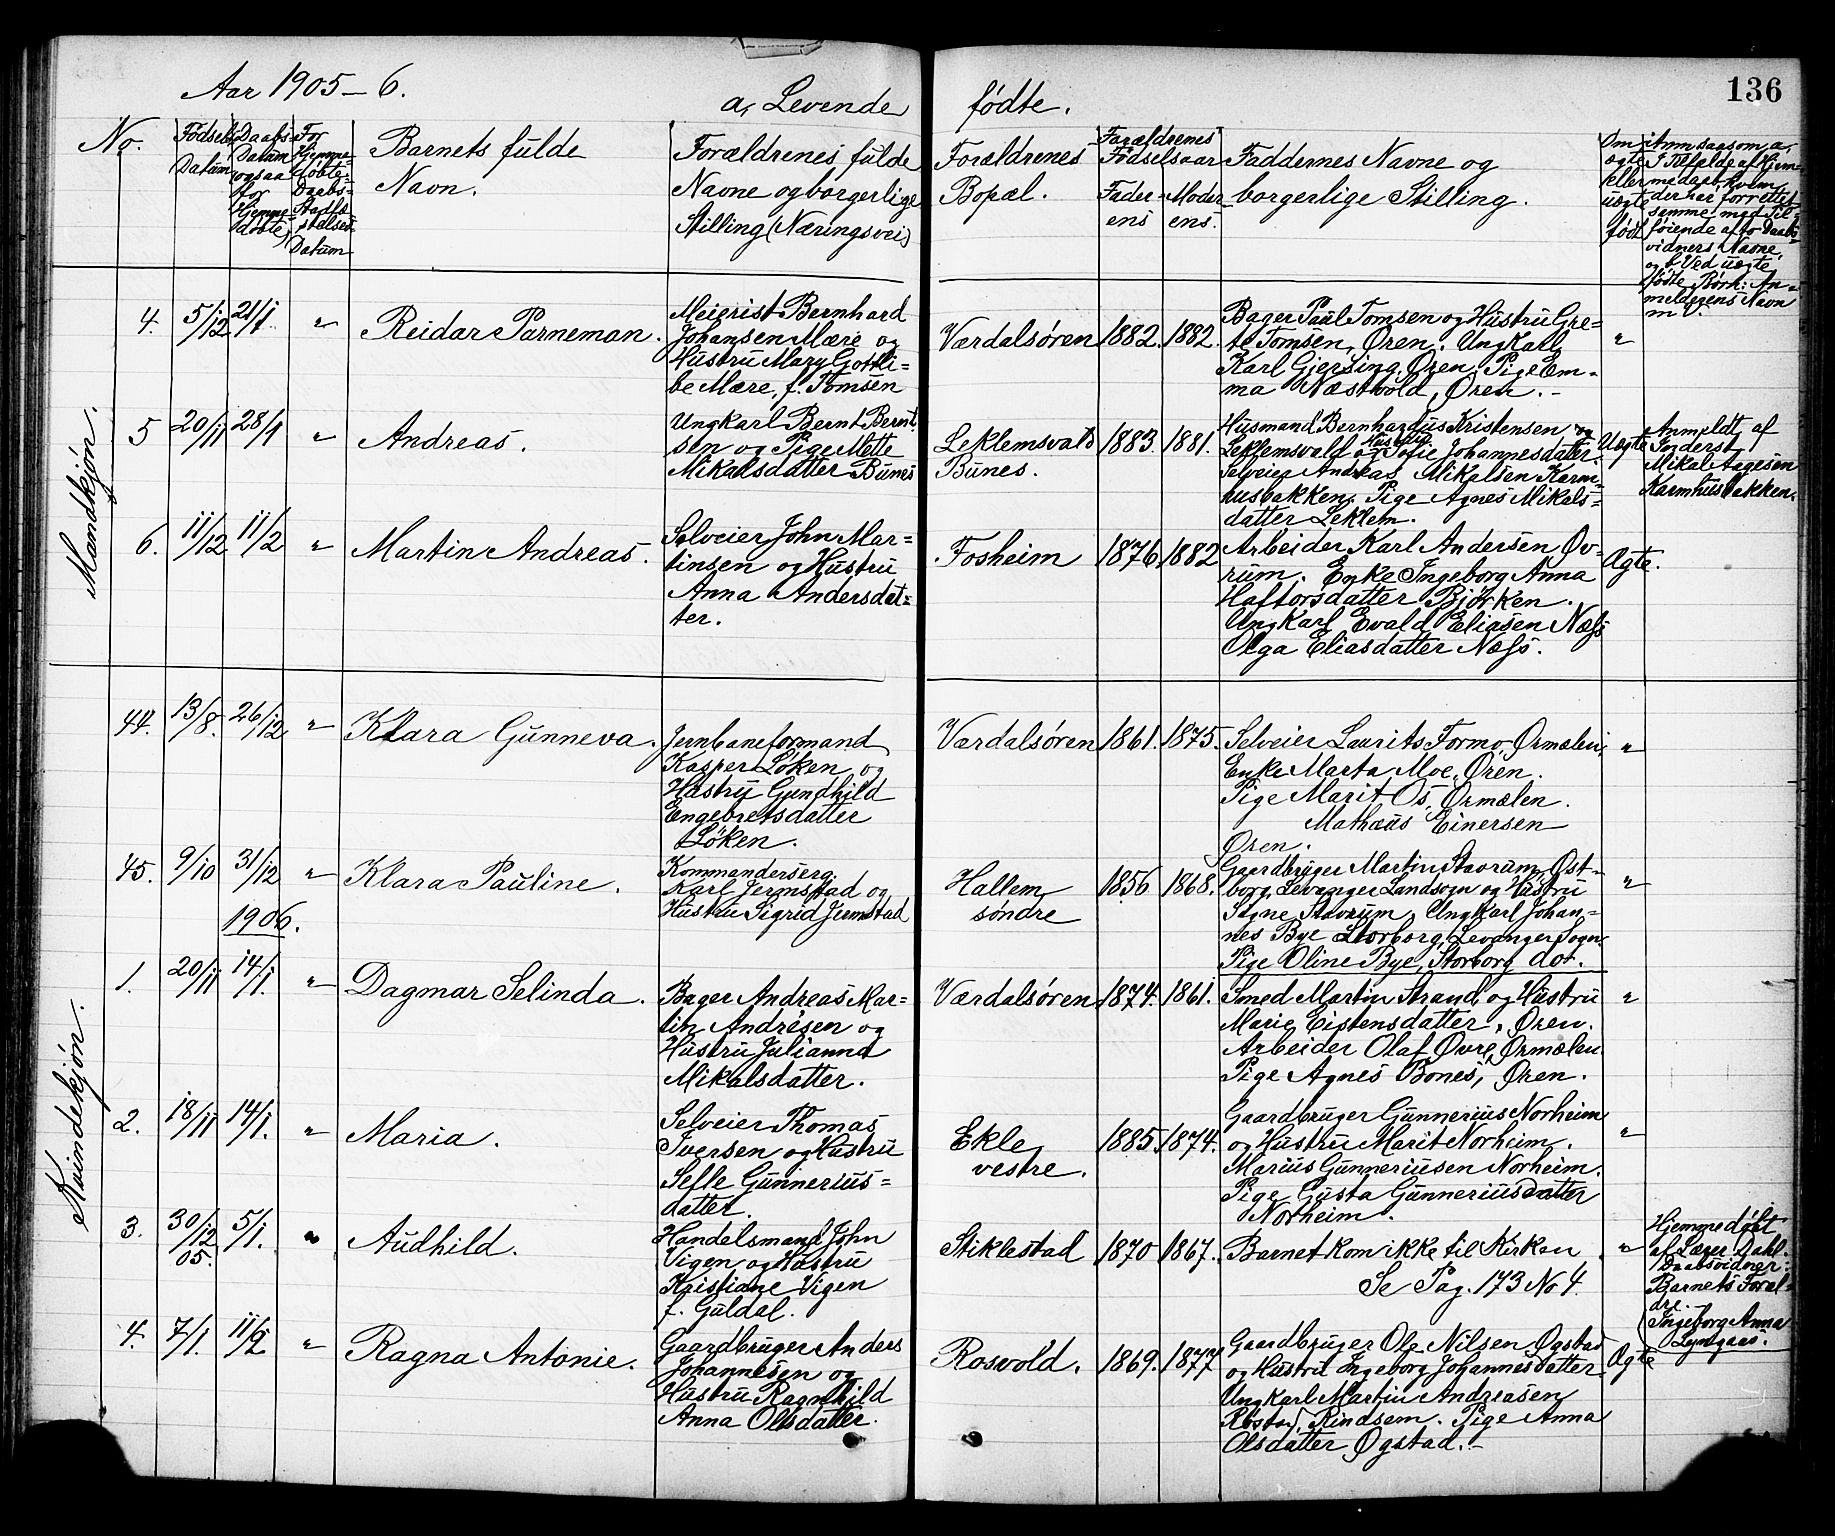 136
Aar 1905-6. a, Levende fødte.
No.
Fødsels Datum
Daabs-
Datum
ogsaa
for
Hjemme
døbte
For
Hjemme-
døbte
Daabs-
Stadfæ
stelses-
Datum
Barnets fulde
Navn.
Forældrenes fulde
Navne og borgerlige
Stilling (Næringsvei)
Forældrenes
Bopæl.
Forældrenes
Fødselsaar
Fader-
ens
Moder
ens.
Faddernes Navne og
borgerlige Stilling.
Om
ægte
eller
uægte
født
Anm saasom a,
I Tilfælde af Hjem-
medaab, hvem
der har forrettet
samme med Til-
føiende af to Daabs-
vidners Navne,
og b Ved uægte
fødte Børn: An-
melderens Navn
m V.
Mandkjøn.
4. 5/12 21/1. " Reidar Parneman.
Meierist Bernhard
Johansen Mære og
Hustru Mary Gottli-
be Mære, f. Tomsen
Værdalsøren 1882. 1882.
Bager Paul Tomsen og Hustru Gre-
te Tomsen, Øren. Ungkarl
Karl Gjersing, Øren, Pige Em-
ma Næstvold, Øren.-
"
5 20/11 28/1 " Andreas.
Ungkarl Bernt Bernt
sen og Pige Mette
Mikalsdatter Bunes
Leklemsvald
Bunes.
1883. 1881.
Husmand Bernhardus Kristensen
Leklemsvald og Hustru Sofie Johannesdatter
Selveier Andreas Mikalsen Karm-
husbakken. Pige Agnes Mikals-
datter Leklem.
Uægte
Anmeldt af
Inderst
Mikal Aagesen
Karmhusbakken.
6. 11/12 11/2 " Martin Andreas.
Selveier John Mar-
tinsen og Hustru
Anna Andersdat-
ter.
Fosheim 1876. 1882
Arbeider Karl Andersen Øv-
rum. Enke Ingeborg Anna
Haftorsdatter Bjørken.
Ungkarl Evald Eliasen Næss
Olga Eliasdatter Næss.
Ægte.
Kvindekjøn.
44. 13/8. 26/12 " Klara Gunneva.
Jernbaneformand
Kasper Løken og
Hustru Gundhild
Engebretsdatter
Løken.
Værdalsøren 1861. 1875.
Selveier Laurits Formo, Ørmelen,
Enke Marta Moe, Øren.
Pige Marit Os, Ørmelen.
Mathæus Einersen
Øren.
"
45. 9/10 31/12 " Klara Pauline.
Kommandersersg.
Karl Jermstad og
Hustru Sigrid Jermstad
Hallem
søndre
1856 1868.
Gaardbruger Martin Stavrum, Øst-
borg, Levanger Landsogn og Hustru
Signe Stavrum, Ungkarl Johan-
nes Bye Storborg, Levanger Sogn.
Pige Oline Bye, Storborg dot.
"
1906.
1. 20/11 14/1. " Dagmar Selinda.
Bager Andreas Mar-
tin Andresen og
Hustru Julianna
Mikalsdatter.
Værdalsøren 1874. 1861.
Smed Martin Strand og Hustru
Marie Eistensdatter, Øren.
Arbeider Olaf Øvre, Ørmelen.
Pige Agnes Bones, Øren.
"
2. 18/11 14/1. " Maria.
Selveier Thomas
Iversen og Hustru
Selle Gunnerius-
datter.
Ekle
vestre.
1885. 1874.
Gaardbruger Gunnerius Norheim
og Hustru Marit Norheim.
Marius Gunneriusen Norheim.
Pige Gusta Gunneriusdatter
Norheim.
"
3. 30/12 05. 5/1. " Audhild.
Handelsmand John
Vigen og Hustru
Kristiane Vigen
f. Guldal.
Stiklestad 1870 1867.
Barnet kom ikke til Kirken
Se Pag. 173 No 4.
"
Hjemmedøbt
af Læger Dahl.
Daabsvidner:
Barnets Foræl-
dre.
Ingeborg Anna
Lyngaas.
4. 7/1. 11/2 " Ragna Antonie.
Gaardbruger Anders
Johannesen og
Hustru Ragnhild
Anna Olsdatter.
Rosvold. 1869. 1877
Gaardbruger Ole Nilsen Øgstad
og Hustru Ingeborg Johannesdatter
Ungkarl Martin Andreasen
Røstad, Rindsem. Pige Anna
Olsdatter Øgstad.-
Ægte